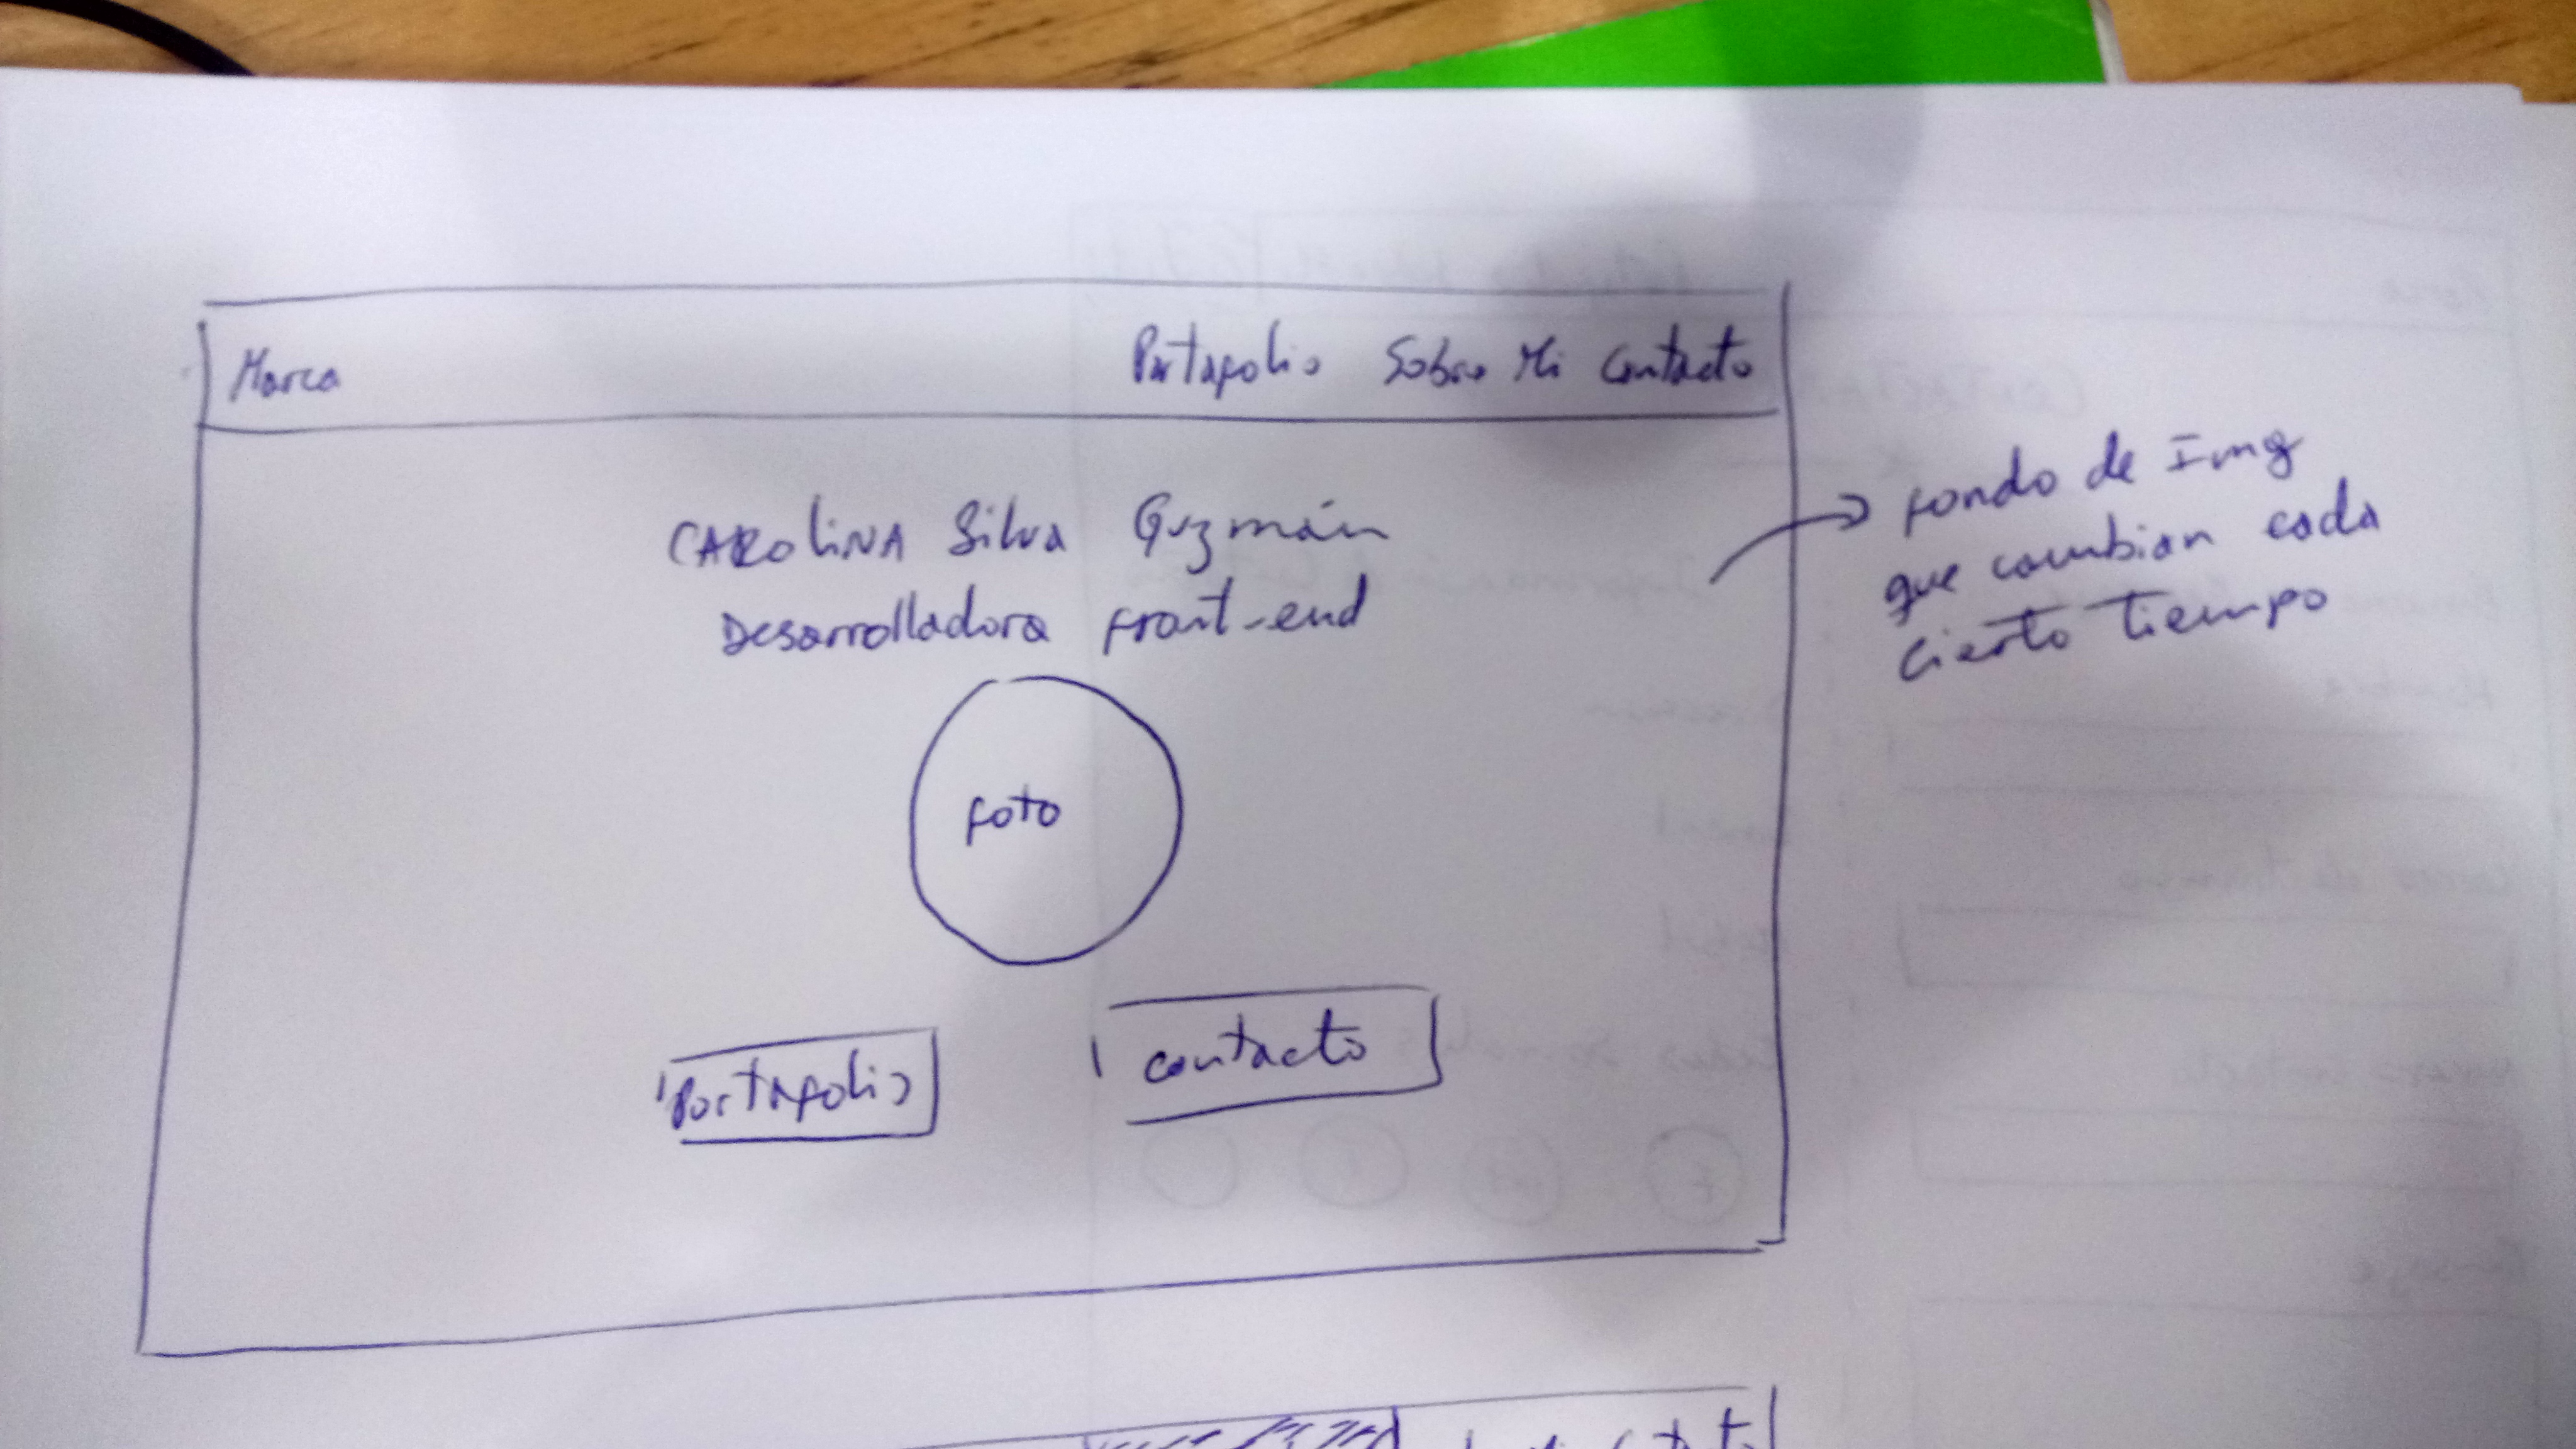 Marca
Portafolio Sobre Mi Contacto
CAROLINA Silva Guzmán
Desarrolladora Front-end
Foto
Portafolio
contacto
Fondo de Img
que cambian cada
cierto tiempo